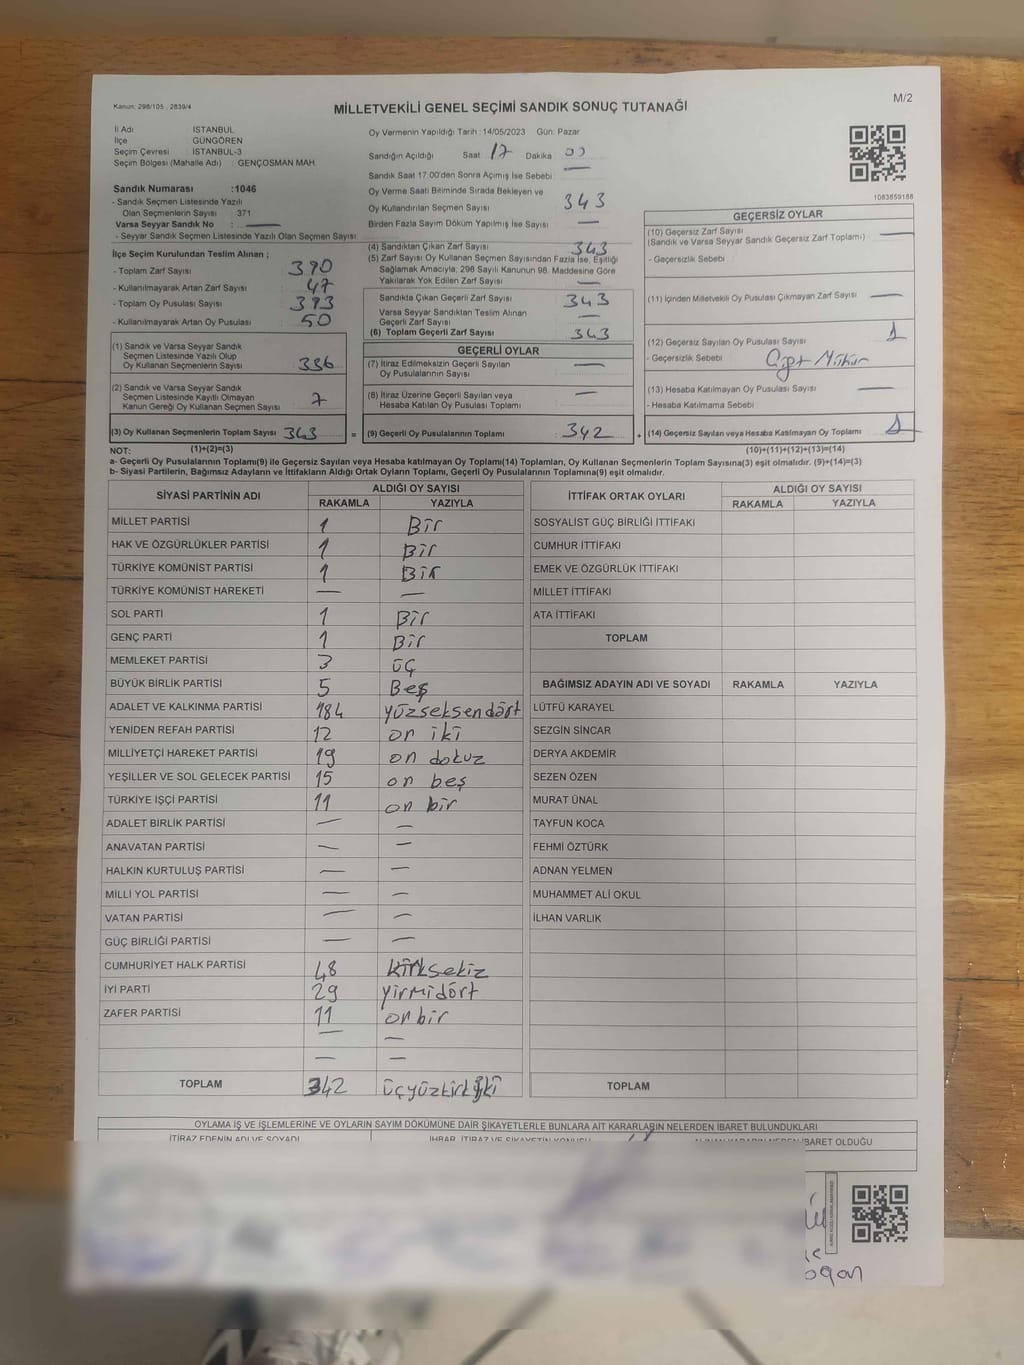 Kanun: 298/105 , 2839/4
MİLLETVEKİLİ GENEL SEÇİMİ SANDIK SONUÇ TUTANAĞI
M/2
İl Adı : İSTANBUL
İlçe : GÜNGÖREN
Seçim Çevresi : İSTANBUL-3
Seçim Bölgesi (Mahalle Adı) : GENÇOSMAN MAH.
Sandık Numarası :1046
- Sandık Seçmen Listesinde Yazılı
Olan Seçmenlerin Sayısı : 371
Varsa Seyyar Sandık No : —
- Seyyar Sandık Seçmen Listesinde Yazılı Olan Seçmen Sayısı:
Oy Vermenin Yapıldığı Tarih : 14/05/2023 Gün: Pazar
Sandığın Açıldığı Saat 17 Dakika 00
Sandık Saat 17.00'den Sonra Açılmış İse Sebebi : —
Oy Verme Saati Bitiminde Sırada Bekleyen ve
Oy Kullandırılan Seçmen Sayısı 343
Birden Fazla Sayım Döküm Yapılmış İse Sayısı —
1083859188
İlçe Seçim Kurulundan Teslim Alınan ;
- Toplam Zarf Sayısı : 390
- Kullanılmayarak Artan Zarf Sayısı : 47
- Toplam Oy Pusulası Sayısı : 393
- Kullanılmayarak Artan Oy Pusulası : 50
(1) Sandık ve Varsa Seyyar Sandık
Seçmen Listesinde Yazılı Olup
Oy Kullanan Seçmenlerin Sayısı : 336
(2) Sandık ve Varsa Seyyar Sandık
Seçmen Listesinde Kayıtlı Olmayan
Kanun Gereği Oy Kullanan Seçmen Sayısı : 7
(3) Oy Kullanan Seçmenlerin Toplam Sayısı : 343
(4) Sandıktan Çıkan Zarf Sayısı 343
(5) Zarf Sayısı Oy Kullanan Seçmen Sayısından Fazla İse, Eşitliği
Sağlamak Amacıyla, 298 Sayılı Kanunun 98. Maddesine Göre
Yakılarak Yok Edilen Zarf Sayısı : —
Sandıkta Çıkan Geçerli Zarf Sayısı 343
Varsa Seyyar Sandıktan Teslim Alınan
Geçerli Zarf Sayısı —
(6) Toplam Geçerli Zarf Sayısı : 343
GEÇERLİ OYLAR
(7) İtiraz Edilmeksizin Geçerli Sayılan
Oy Pusulalarının Sayısı —
(8) İtiraz Üzerine Geçerli Sayılan veya
Hesaba Katılan Oy Pusulası Toplamı —
= (9) Geçerli Oy Pusulalarının Toplamı : 342
GEÇERSİZ OYLAR
(10) Geçersiz Zarf Sayısı —
(Sandık ve Varsa Seyyar Sandık Geçersiz Zarf Toplamı)
- Geçersizlik Sebebi :
(11) İçinden Milletvekili Oy Pusulası Çıkmayan Zarf Sayısı —
(12) Geçersiz Sayılan Oy Pusulası Sayısı : 1
- Geçersizlik Sebebi : Çift Mühür
(13) Hesaba Katılmayan Oy Pusulası Sayısı : —
- Hesaba Katılmama Sebebi :
+ (14) Geçersiz Sayılan veya Hesaba Katılmayan Oy Toplamı : 1
NOT: (1)+(2)=(3)
(10)+(11)+(12)+(13)=(14)
a- Geçerli Oy Pusulalarının Toplamı(9) ile Geçersiz Sayılan veya Hesaba katılmayan Oy Toplamı(14) Toplamları, Oy Kullanan Seçmenlerin Toplam Sayısına(3) eşit olmalıdır. (9)+(14)=(3)
b- Siyasi Partilerin, Bağımsız Adayların ve İttifakların Aldığı Ortak Oyların Toplamı, Geçerli Oy Pusulalarının Toplamına(9) eşit olmalıdır.
SİYASİ PARTİNİN ADI ALDIĞI OY SAYISI
RAKAMLA YAZIYLA
MİLLET PARTİSİ 1 Bir
HAK VE ÖZGÜRLÜKLER PARTİSİ 1 Bir
TÜRKİYE KOMÜNİST PARTİSİ 1 Bir
TÜRKİYE KOMÜNİST HAREKETİ — —
SOL PARTİ 1 Bir
GENÇ PARTİ 1 Bir
MEMLEKET PARTİSİ 3 üç
BÜYÜK BİRLİK PARTİSİ 5 Beş
ADALET VE KALKINMA PARTİSİ 184 yüzseksendört
YENİDEN REFAH PARTİSİ 12 on iki
MİLLİYETÇİ HAREKET PARTİSİ 19 on dokuz
YEŞİLLER VE SOL GELECEK PARTİSİ 15 on beş
TÜRKİYE İŞÇİ PARTİSİ 11 on bir
ADALET BİRLİK PARTİSİ — —
ANAVATAN PARTİSİ — —
HALKIN KURTULUŞ PARTİSİ — —
MİLLİ YOL PARTİSİ — —
VATAN PARTİSİ — —
GÜÇ BİRLİĞİ PARTİSİ — —
CUMHURİYET HALK PARTİSİ 48 kırksekiz
İYİ PARTİ 29 yirmidört
ZAFER PARTİSİ 11 onbir
— —
— —
TOPLAM 342 üçyüzkırkiki
İTTİFAK ORTAK OYLARI ALDIĞI OY SAYISI
RAKAMLA YAZIYLA
SOSYALİST GÜÇ BİRLİĞİ İTTİFAKI
CUMHUR İTTİFAKI
EMEK VE ÖZGÜRLÜK İTTİFAKI
MİLLET İTTİFAKI
ATA İTTİFAKI
TOPLAM
BAĞIMSIZ ADAYIN ADI VE SOYADI RAKAMLA YAZIYLA
LÜTFÜ KARAYEL
SEZGİN SİNCAR
DERYA AKDEMİR
SEZEN ÖZEN
MURAT ÜNAL
TAYFUN KOCA
FEHMİ ÖZTÜRK
ADNAN YELMEN
MUHAMMET ALİ OKUL
İLHAN VARLIK
TOPLAM
OYLAMA İŞ VE İŞLEMLERİNE VE OYLARIN SAYIM DÖKÜMÜNE DAİR ŞİKAYETLERLE BUNLARA AİT KARARLARIN NELERDEN İBARET BULUNDUKLARI
İTİRAZ EDENİN ADI VE SOYADI İHBAR, İTİRAZ VE ŞİKAYETİN KONUSU İBARET OLDUĞU